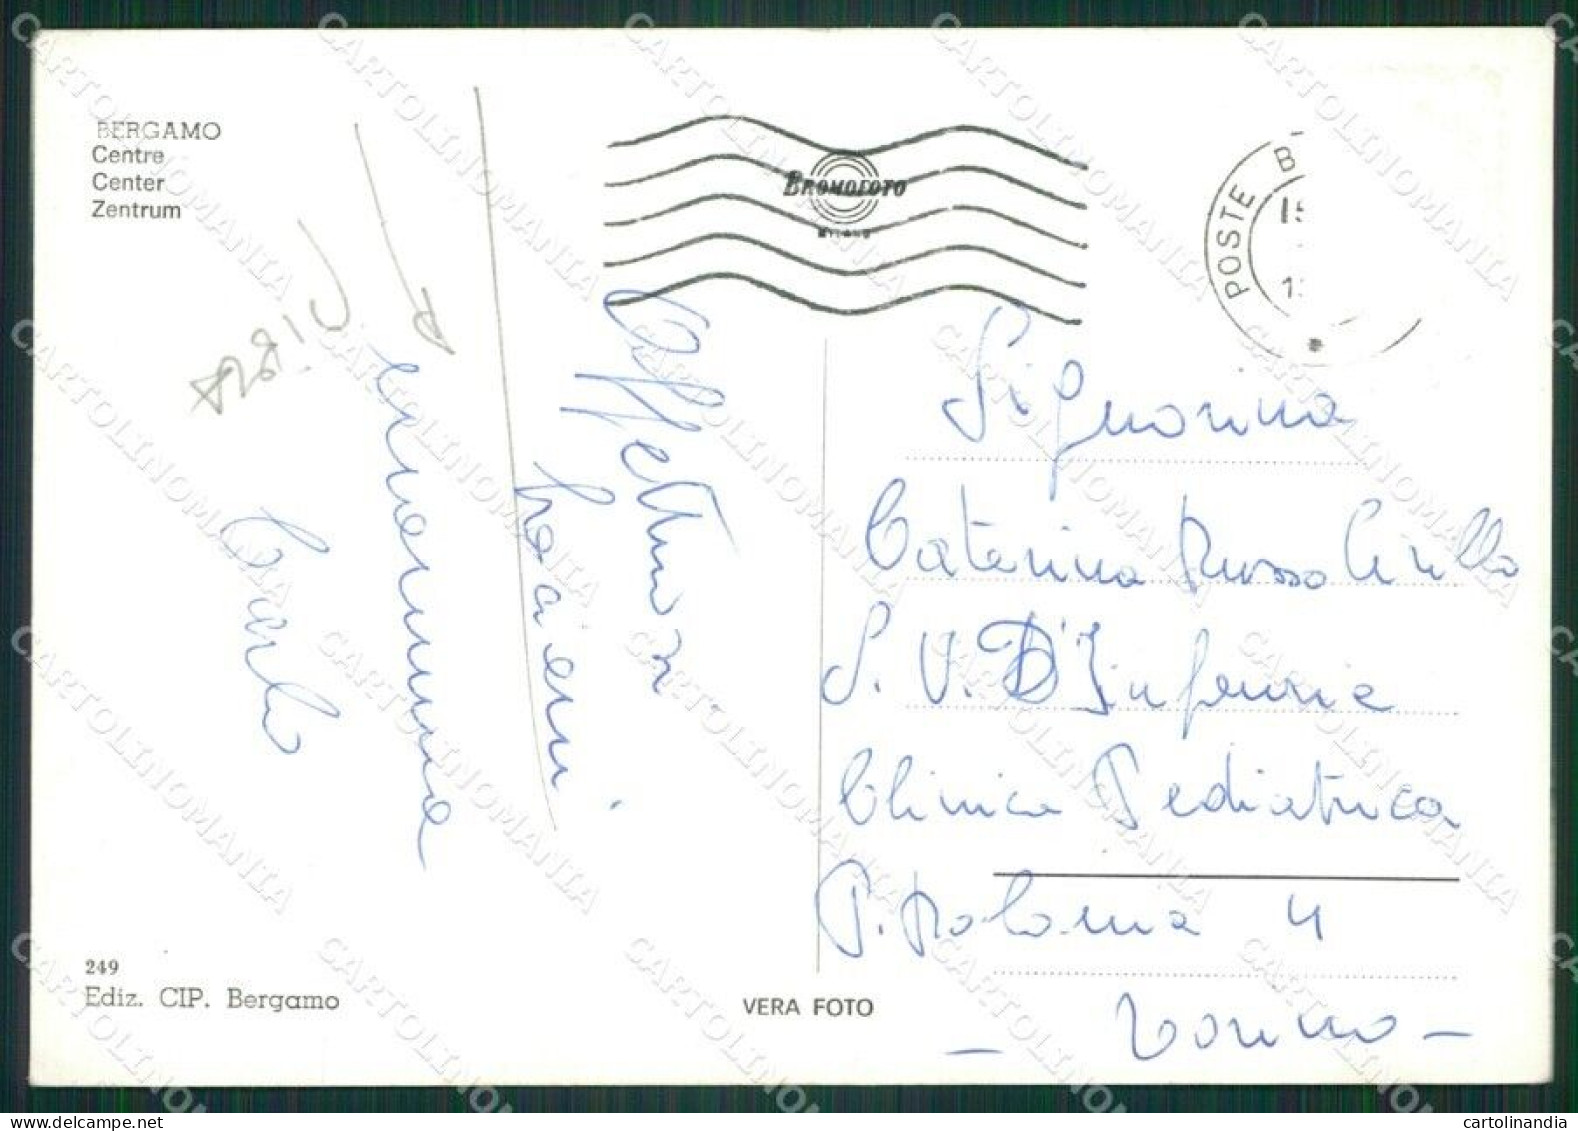 BERGAMO
Centre
Center
Zentrum
BROMOFOTO
MILANO
POSTE B
15
Affettuosi
bacioni.
mamma
Carlo
Signorina
Caterina Russo Cirillo
S. V. D'Infanzia
Clinica Pediatrica
P. Polonia 4
- Torino -
249
Ediz. CIP. Bergamo
VERA FOTO
CARTOLINOMANIA
cartolinandia